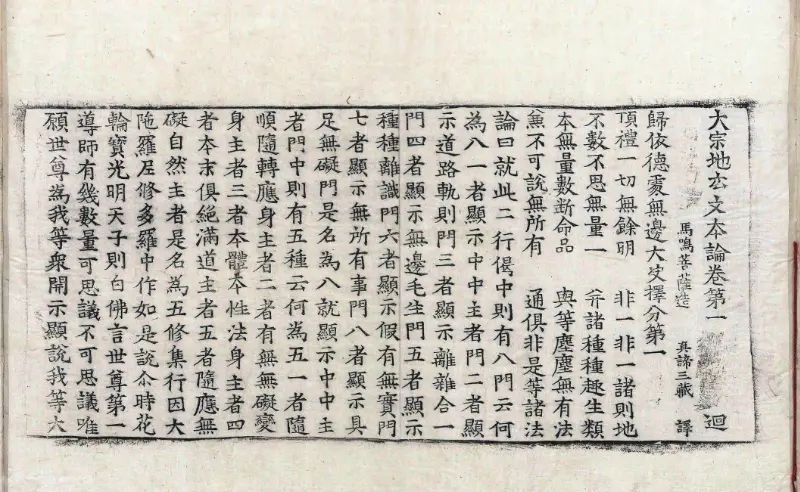 大宗地玄文本論卷第一 迴
馬鳴菩薩造 真諦三藏 譯
歸依德處無邊大決擇分第一
頂禮一切無餘明 非一非一諸則地
不數不思無量一 并諸種種趣生類
本無量數斷命品 與等塵塵無有法
無不可說無所有 通俱非是等諸法
論曰就此二行偈中則有八門云何
為八一者顯示中中主者門二者顯
示道路軌則門三者顯示離雜合一
門四者顯示無邊毛生門五者顯示
種種離識門六者顯示假有無實門
七者顯示無所有事門八者顯示具
足無礙門是名為八就顯示中中主
者門中則有五種云何為五一者隨
順隨轉應身主者二者有無無礙變
身主者三者本體本性法身主者四
者本末俱絕滿道主者五者隨應無
礙自然主者是名為五修集行因大
陁羅尼修多羅中作如是說尒時花
輪寶光明天子則白佛言世尊第一
導師有幾數量可思議不可思議唯
願世尊為我等衆開示顯說我等大